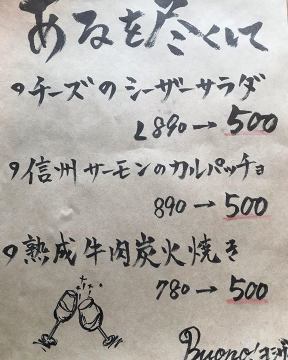 あるを尽くして
チーズのシーザーサラダ
890→500
信州サーモンのカルパッチョ
890→500
熟成牛肉炭火焼き
780→500
Buono